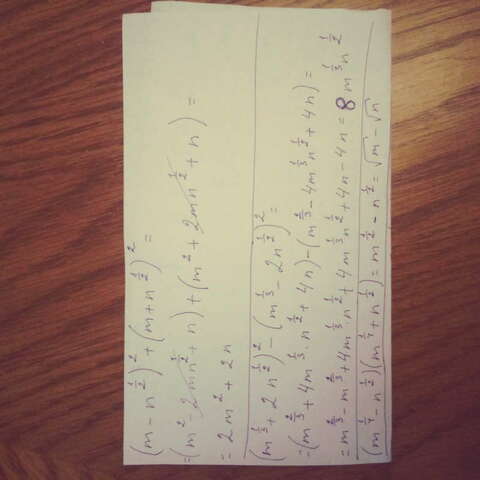 (m - n^{1/2})^2 + (m + n^{1/2})^2 =
= (m^2 - 2mn^{1/2} + n) + (m^2 + 2mn^{1/2} + n) =
= 2m^2 + 2n
(m^{1/3} + 2n^{1/2})^2 - (m^{1/3} - 2n^{1/2})^2 =
= (m^{2/3} + 4m^{1/3} · n^{1/2} + 4n) - (m^{2/3} - 4m^{1/3} n^{1/2} + 4n) =
= m^{2/3} - m^{2/3} + 4m^{1/3} n^{1/2} + 4m^{1/3} n^{1/2} + 4n - 4n = 8m^{1/3} n^{1/2}
(m^{1/4} - n^{1/2})(m^{1/4} + n^{1/2}) = m^{1/2} - n^{1/2} = √m - √n